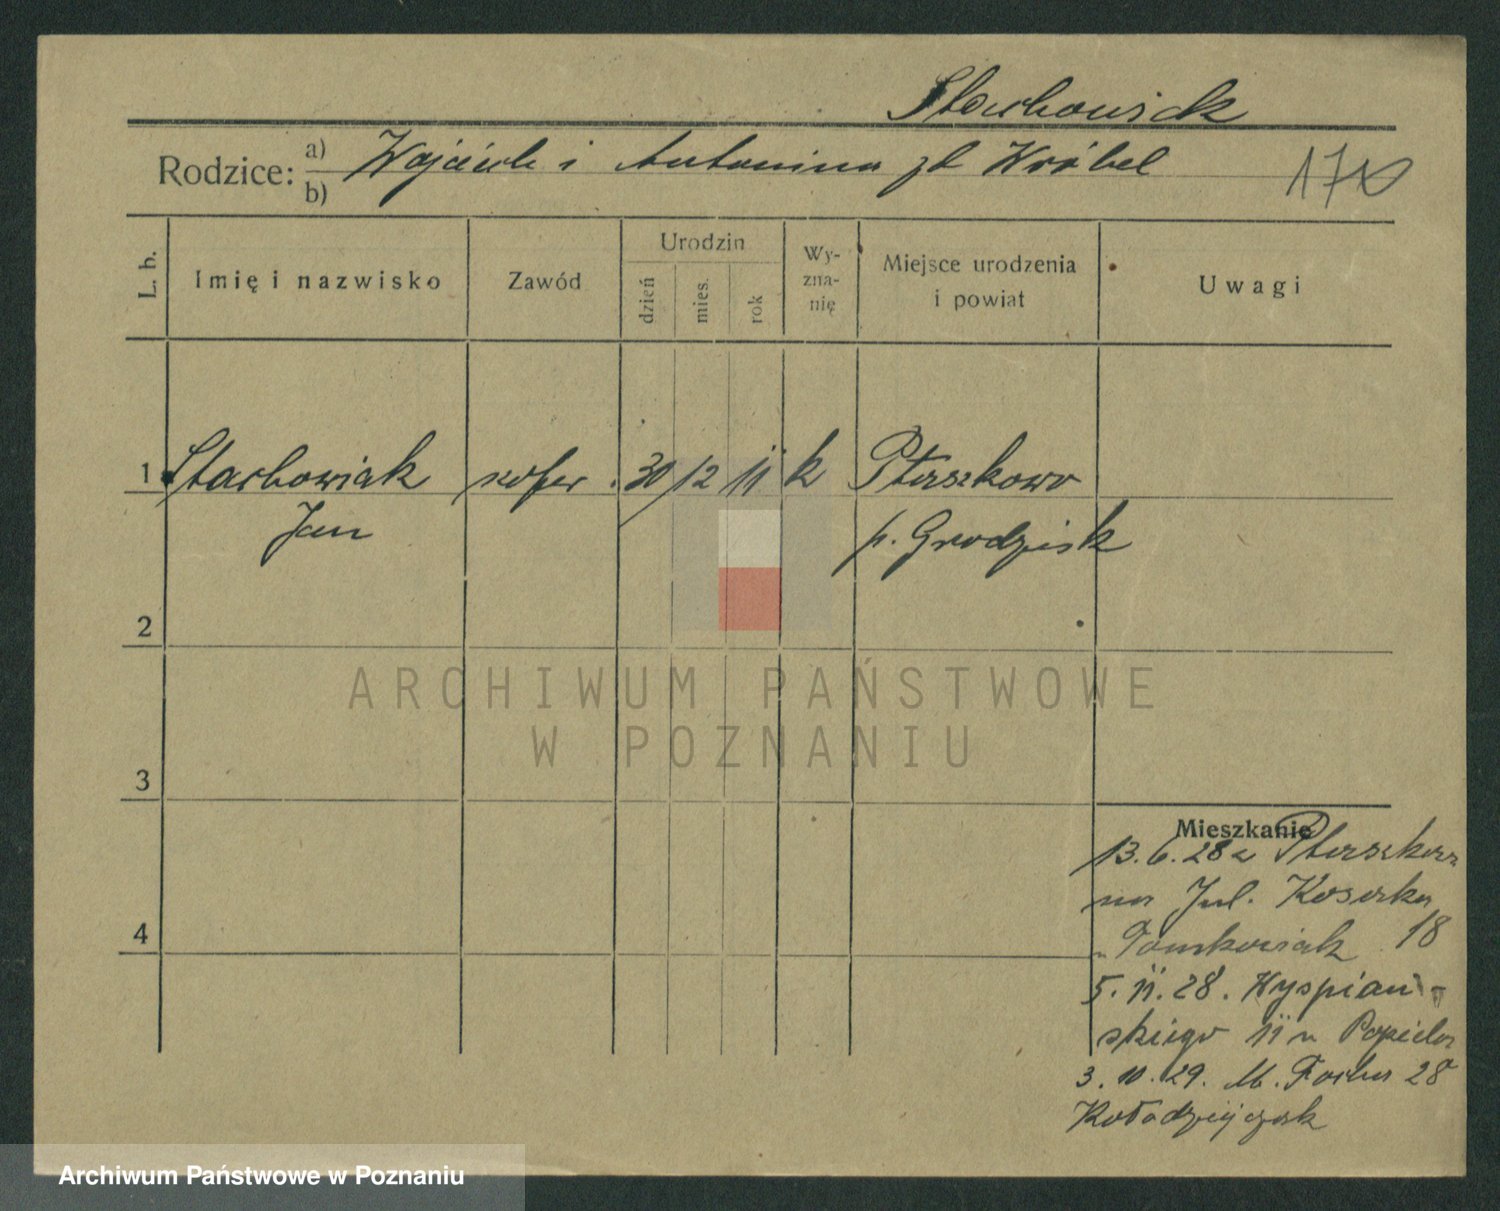 Stachowiak
Rodzice: a) b) Wojciech i Antonina zd Wróbel
17
L. b.
Imię i nazwisko
Zawód
Urodzin
dzień
mies.
rok
Wy-
zna-
nię
Miejsce urodzenia
i powiat
Uwagi
1 Stachowiak szofer 30 12 11 k Ptaszkowo
Jan p. Grodzisk
2
3
4
Mieszkanie
13.6.28 z Ptaszkowa
na Jul. Kossaka
u Tomkowiak 18
5. 11. 28. Wyspian-
skiego 11 u
3. 10. 29. M. Focha 28
Kołodziejczak
ARCHIWUM PAŃSTWOWE
W POZNANIU
Archiwum Państwowe w Poznaniu